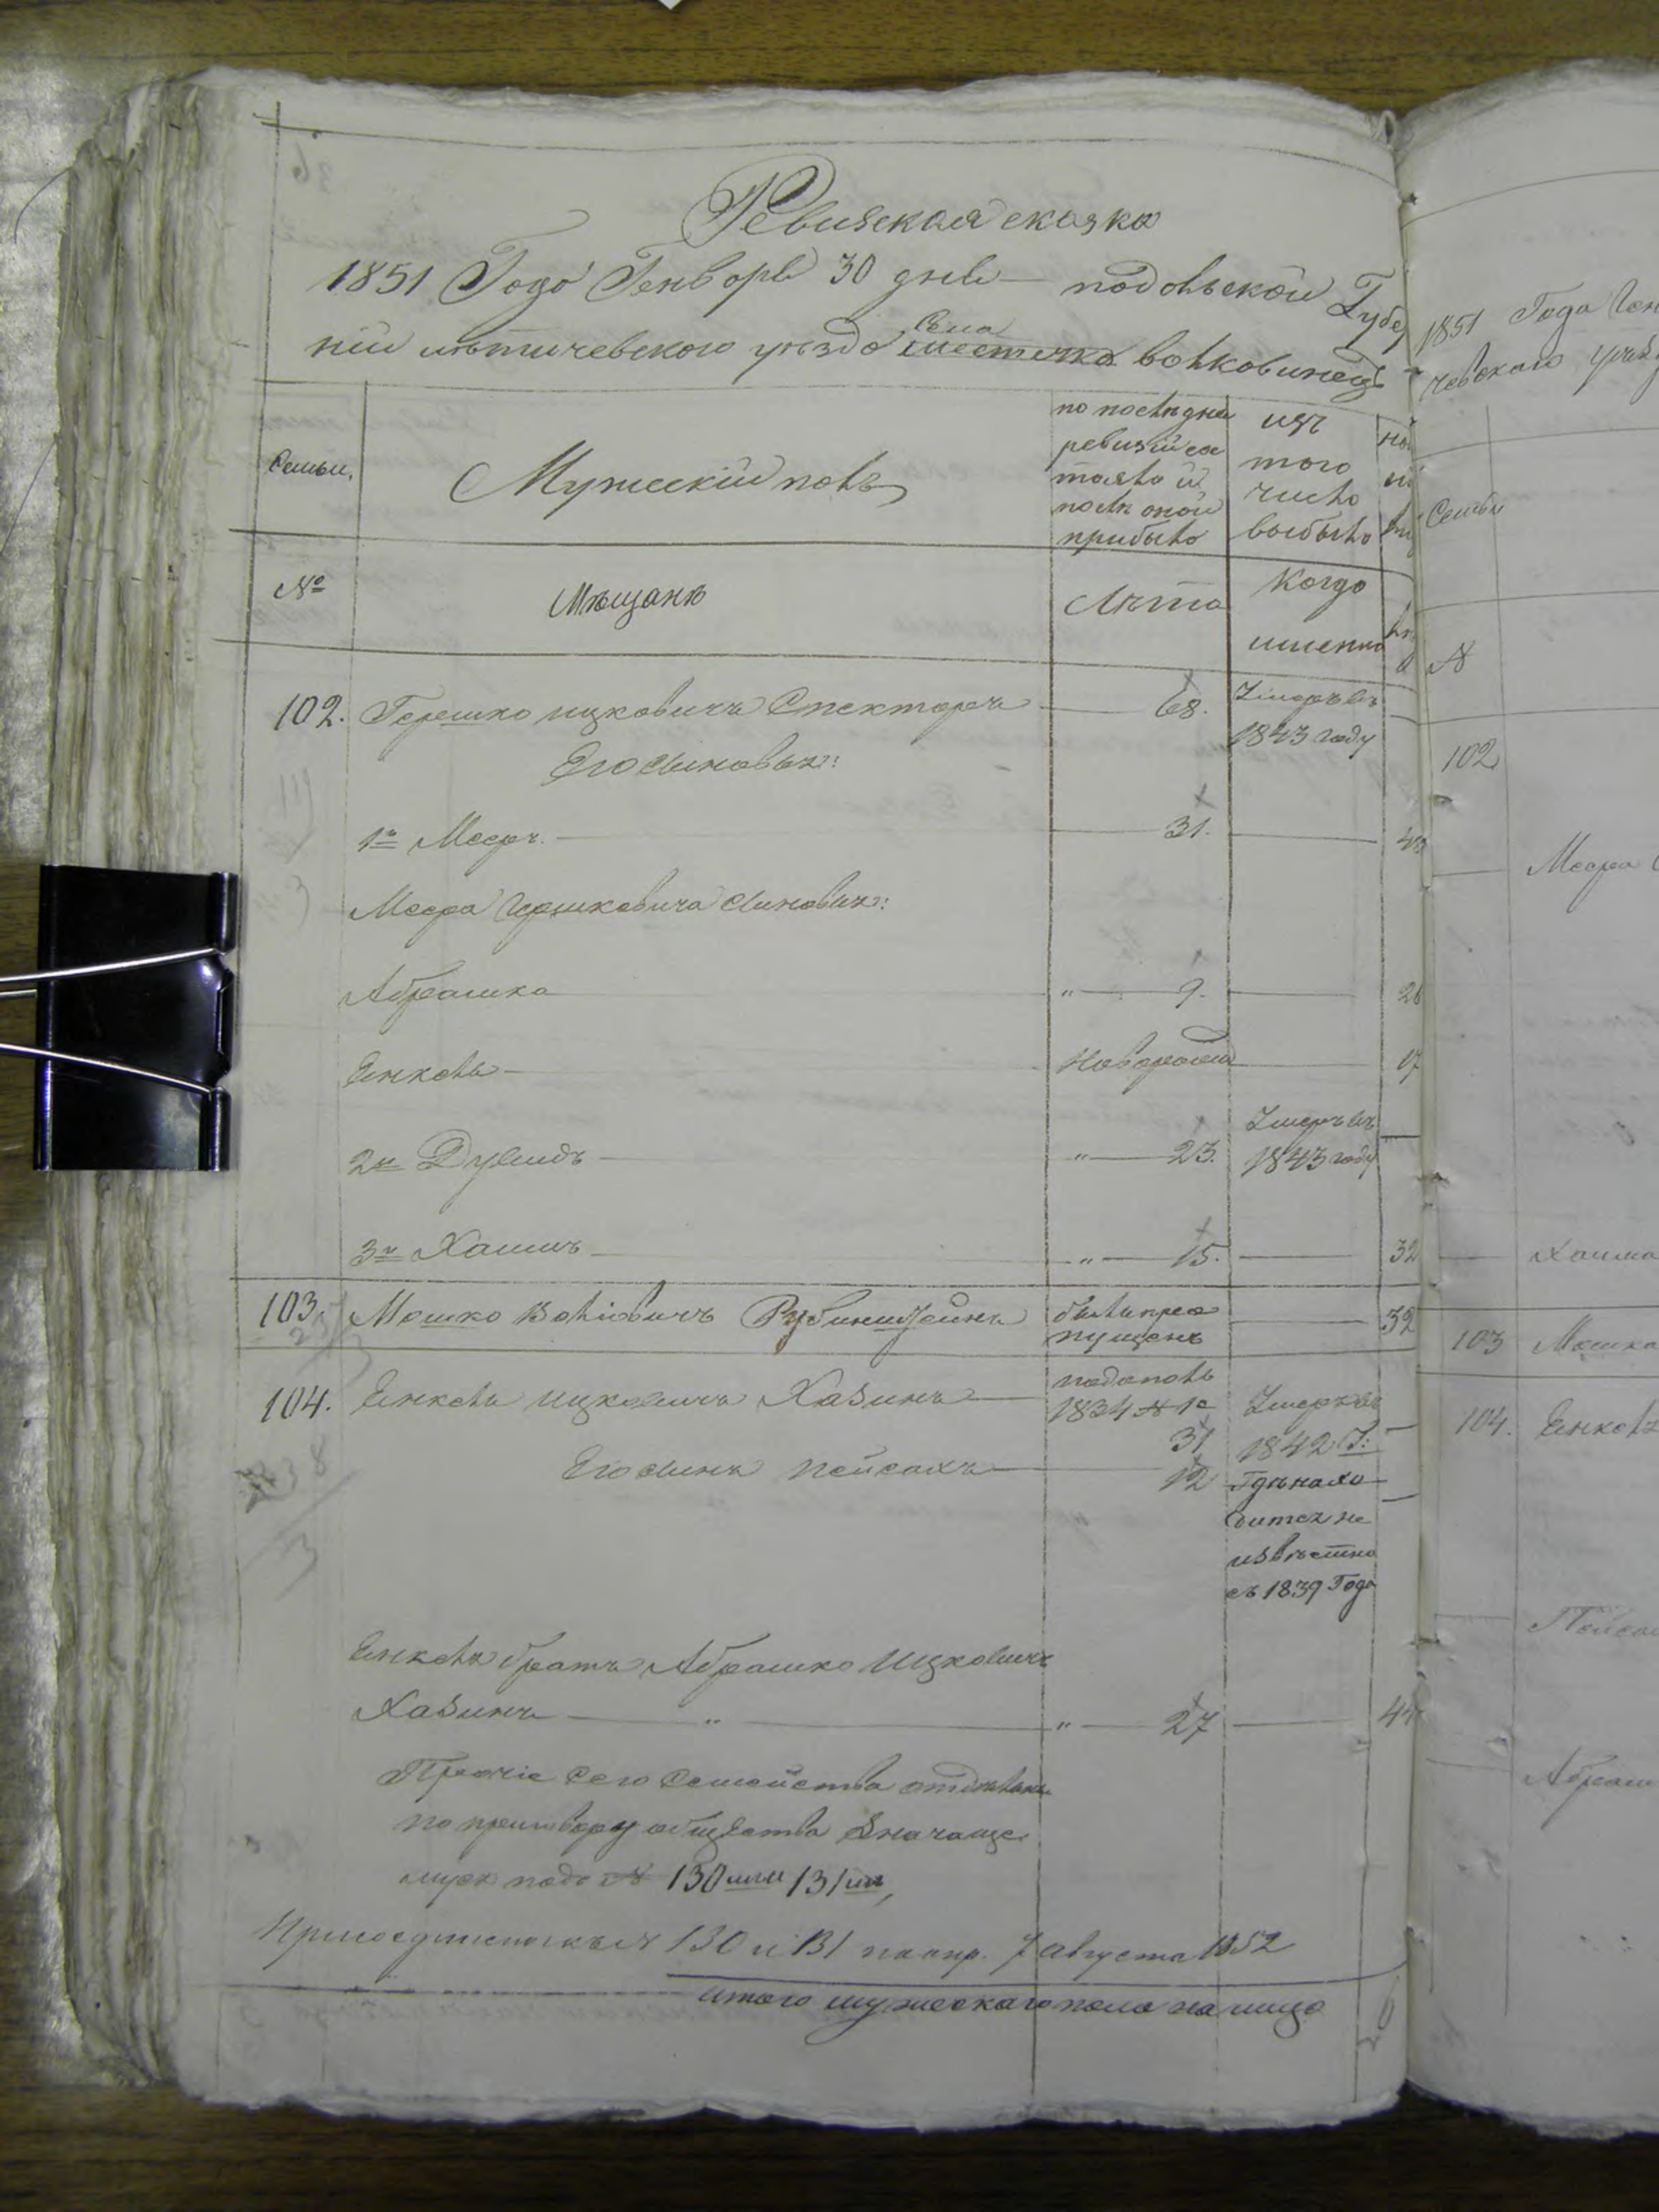 Ревизская сказка
1851 Года Генваря 30 дня подольской Губер
нии литичевского уезда местечка Села волковинец
Семьи.
Мужеский полъ
по последней
ревизии со
стояло и
после оной
прибыло
изъ
того
числа
выбыло
№
Мѣщанъ
Лѣта
Когда
именно
102. Гершко ицковичъ Спекторъ 68. Умеръ въ
1843 году
Его сыновья:
1й Мееръ. 31. 48
Меера Гершковича сыновья:
Абрашко " 9. 26
Янкель Новорожд 17
2й Дувидъ " 23. Умеръ въ
1843 году
3й Хаимъ " 15. 32
103. Мошко Волковичъ Рубинштейнъ былъ про
пущенъ 32
104. Янкель ицковичъ Хазинъ подополн
1834 № 10
31 Умеръ въ
1842 Г:
Его сынъ пейсахъ 12 Гдѣ нахо
дится не
извѣстно
съ 1839 Года
Янкеля братъ Абрашко Ицковичъ
Хазинъ " " 27 44
Прочіе сего семейства отдѣлены
по приговору общества значаще
муся подъ № 130мъ и 131мъ,
Присоединены къ № 130 и 131 по опр. 7 августа 1852
итого мужескаго пола на лицо 6
1851 Года Ген
чевскаго уѣз
Семьи
№
102
Меера
Хаима
103 Мошка
104. Янкель
Пейса
Абраш